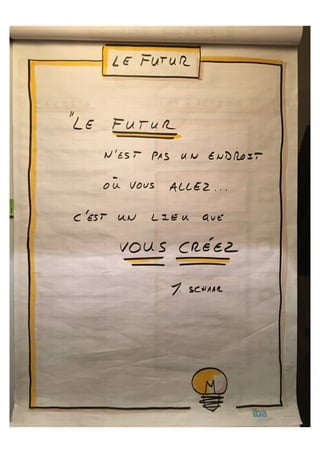 LE FUTUR
"LE FUTUR
N'EST PAS UN ENDROIT
OÙ VOUS ALLEZ...
C'EST UN LIEU QUE
VOUS CRÉEZ
J. SCHAAR
M
iba